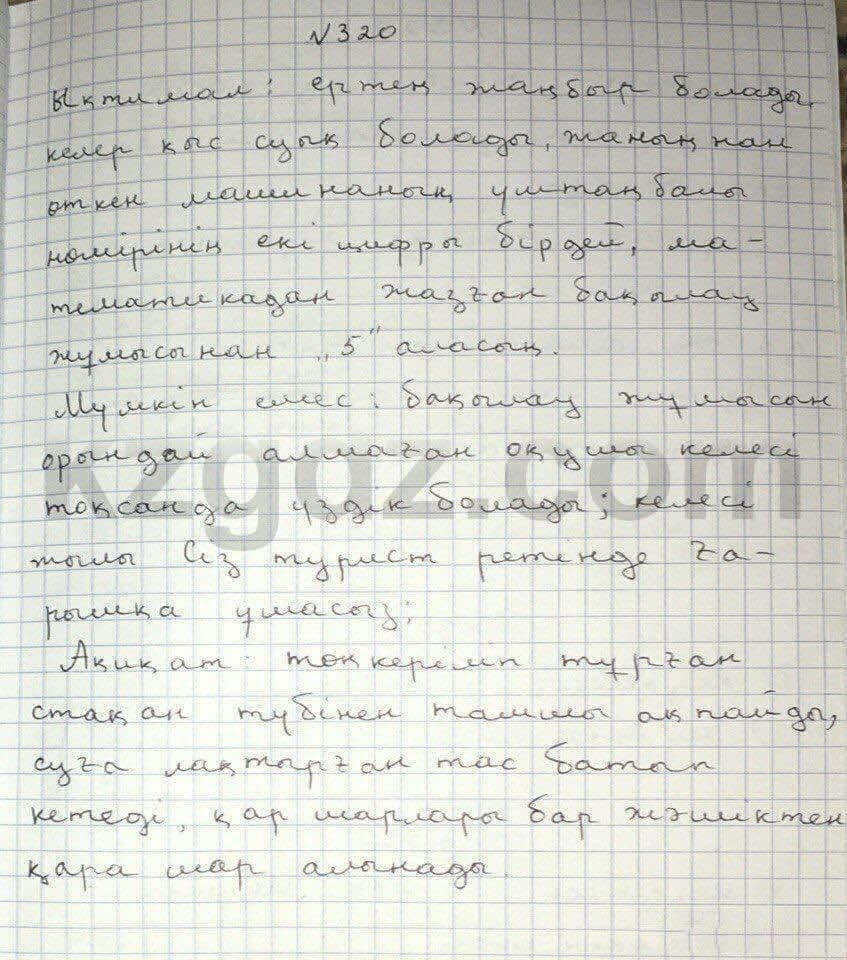 №320
Ықтимал: ертең жаңбыр болады,
келер қыс суық болады, жаныңнан
өткен машинаның үштаңбалы
нөмірінің екі цифры бірдей, ма-
тематикадан жазған бақылау
жұмысынан „5" аласың.
Мүмкін емес: бақылау жұмысын
орындай алмаған оқушы келесі
тоқсанда үздік болады; келесі
жылы Сіз турист ретінде ға-
рышқа ұшасыз;
Ақиқат: төңкеріліп тұрған
стақан түбінен тамшы ақпайды,
суға лақтырған тас батып
кетеді, қар шарлары бар жәшіктен
қара шар алынады.
kzgdz.com